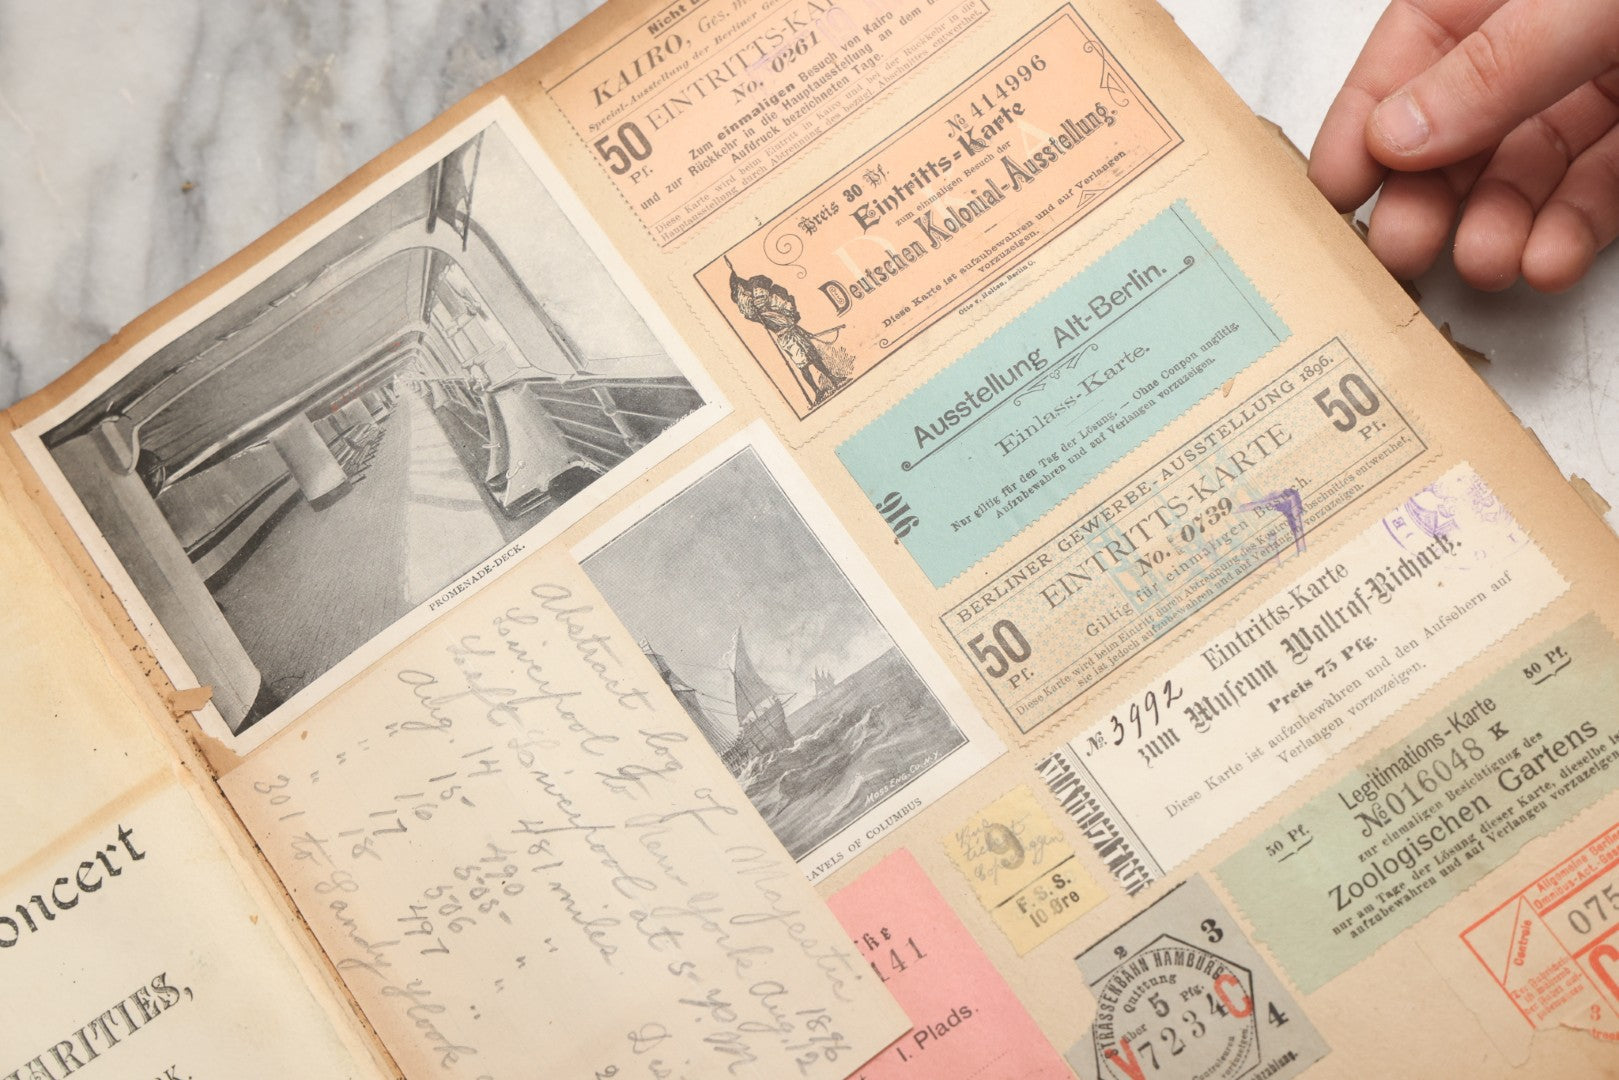 KAIRO,
Special-Ausstellung der Berliner
EINTRITTS-KA
No. 0261
50
Pf.
Zum einmaligen Besuch von Kairo
und zur Rückkehr in die Hauptausstellung an dem
Aufdruck bezeichneten Tage.
Diese Karte wird beim Eintritt in Kairo und bei der Rückkehr in die
Hauptausstellung durch Abtrennung des bezügl. Abschnittes entwerthet.
№ 414996
Preis 30 Pf.
Eintritts-Karte
zum einmaligen Besuch der
Deutschen Kolonial-Ausstellung.
Diese Karte ist aufzubewahren und auf Verlangen
vorzuzeigen.
Ausstellung Alt-Berlin.
Einlass-Karte.
Nur giltig für den Tag der Lösung. — Ohne Coupon ungiltig.
Aufzubewahren und auf Verlangen vorzuzeigen.
916
BERLINER GEWERBE-AUSSTELLUNG 1896.
EINTRITTS-KARTE
50
Pf.
No. 0739
50
Pf.
Giltig für einmaligen Besuch.
Diese Karte wird beim Eintritt durch Abtrennung des Kontrol Abschnittes entwerthet,
sie ist jedoch aufzubewahren und auf Verlangen vorzuzeigen.
Eintritts-Karte
№ 3992
zum Museum Wallraf-Richartz.
Preis 75 Pfg.
Diese Karte ist aufzubewahren und den Aufsehern auf
Verlangen vorzuzeigen.
Legitimations-Karte
50 Pf.
№ 016048 K
50 Pf.
zur einmaligen Besichtigung des
Zoologischen Gartens
nur am Tage der Lösung dieser Karte, dieselbe
aufzubewahren und auf Verlangen vorzuzeigen
PROMENADE-DECK.
MOSS ENG. CO. N.Y.
RAVELS OF COLUMBUS
Abstract log of Majestic
Liverpool to New York Aug. 1896
Left Liverpool at 5 yp.M 12
Aug. 14 481 miles.
" 15- 490 "
" 16 505- "
" 17 506 "
" 18 497
301 to Sandy Hook
9
F. S. S.
10 Øre
ike
141
I. Plads.
2
3
4
STRASSENBAHN HAMBURG
Quittung
über 5 Pfg.
7234
V
C
Allgemeine Berliner
Omnibus-Act.-Ges
Centrale
075
oncert
ARITIES,
RK.